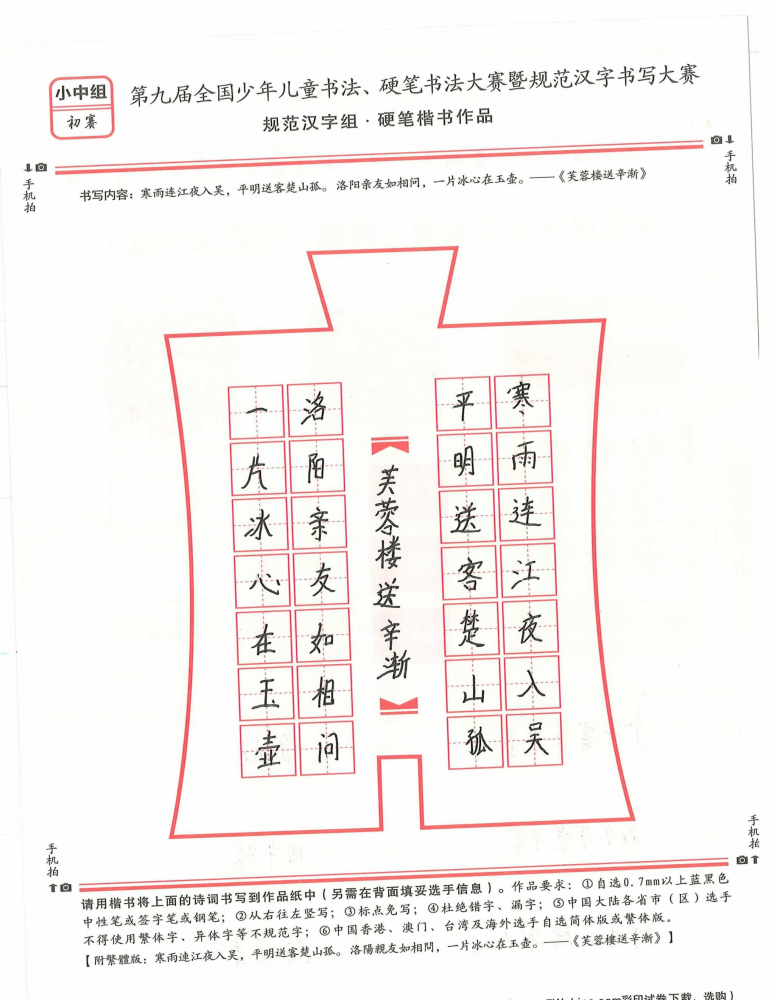 小中组
初赛
第九届全国少年儿童书法、硬笔书法大赛暨规范汉字书写大赛
规范汉字组·硬笔楷书作品
手机拍
手机拍
书写内容：寒雨连江夜入吴，平明送客楚山孤。洛阳亲友如相问，一片冰心在玉壶。——《芙蓉楼送辛渐》
寒雨连江夜入吴
平明送客楚山孤
芙蓉楼送辛渐
洛阳亲友如相问
一片冰心在玉壶
手机拍
手机拍
请用楷书将上面的诗词书写到作品纸中（另需在背面填妥选手信息）。作品要求：①自选0.7mm以上蓝黑色
中性笔或签字笔或钢笔；②从右往左竖写；③标点免写；④杜绝错字、漏字；⑤中国大陆各省市（区）选手
不得使用繁体字、异体字等不规范字；⑥中国香港、澳门、台湾及海外选手自选简体版或繁体版。
【附繁體版：寒雨連江夜入吳，平明送客楚山孤。洛陽親友如相問，一片冰心在玉壺。——《芙蓉樓送辛漸》】
彩印试卷下载、选购）